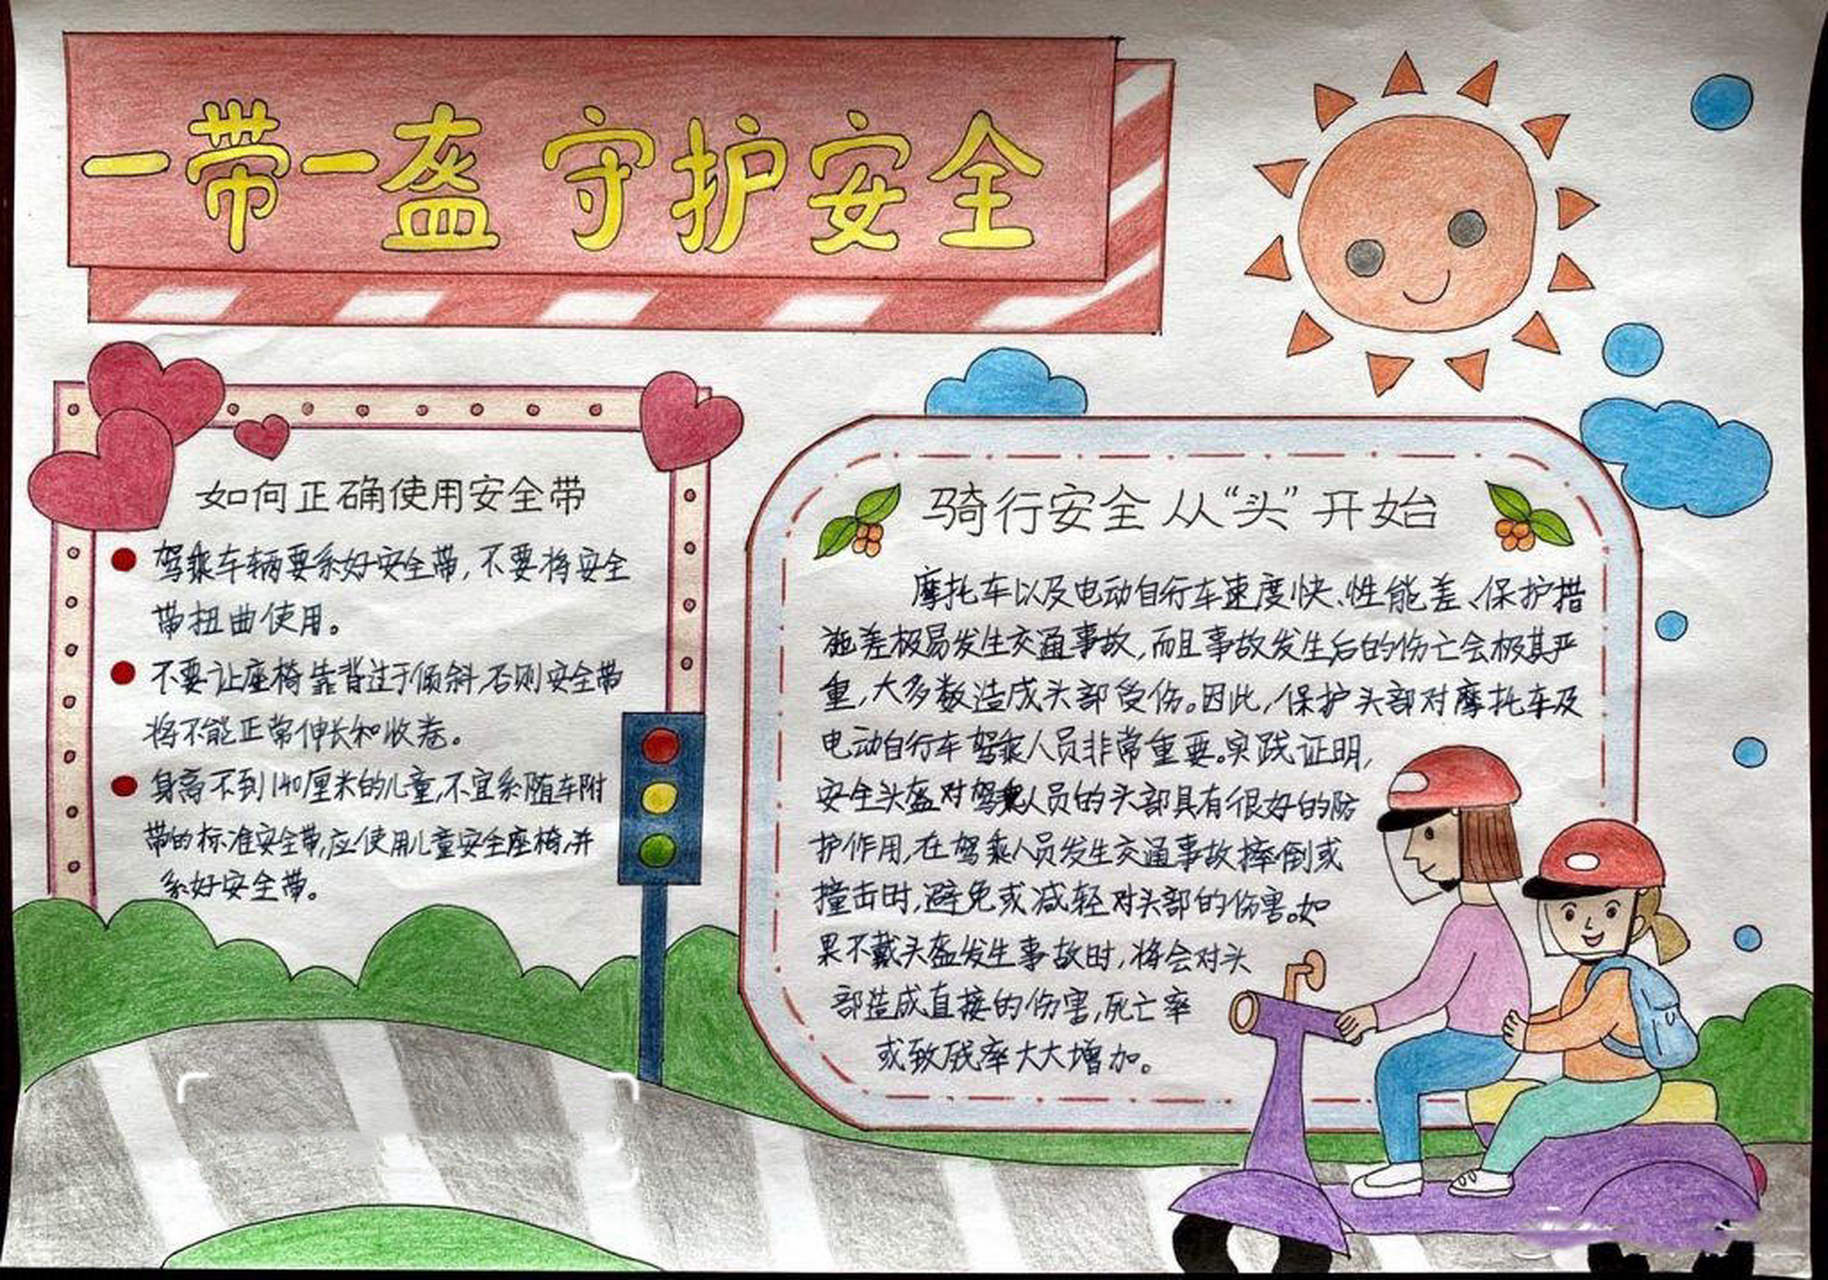 一带一盔 守护安全
如何正确使用安全带
驾乘车辆要系好安全带，不要将安全
带扭曲使用。
不要让座椅靠背过于倾斜，否则安全带
将不能正常伸长和收卷。
身高不到140厘米的儿童，不宜系随车附
带的标准安全带，应使用儿童安全座椅，并
系好安全带。
骑行安全从“头”开始
摩托车以及电动自行车速度快、性能差、保护措
施差极易发生交通事故，而且事故发生后的伤亡会极其严
重，大多数造成头部受伤。因此，保护头部对摩托车及
电动自行车驾乘人员非常重要。实践证明，
安全头盔对驾乘人员的头部具有很好的防
护作用，在驾乘人员发生交通事故摔倒或
撞击时，避免或减轻对头部的伤害。如
果不戴头盔发生事故时，将会对头
部造成直接的伤害，死亡率
或致残率大大增加。